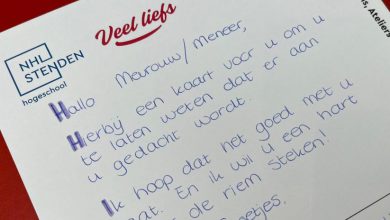 NHL
STENDEN
hogeschool
Veel liefs
Hallo Meurouw/Meneer,
Hierbij een kaart voor u om u
te laten weten dat er aan
u gedacht wordt.
Ik hoop dat het goed met u
gaat. En ik wil u een hart
onder de riem steken!
Ateliers